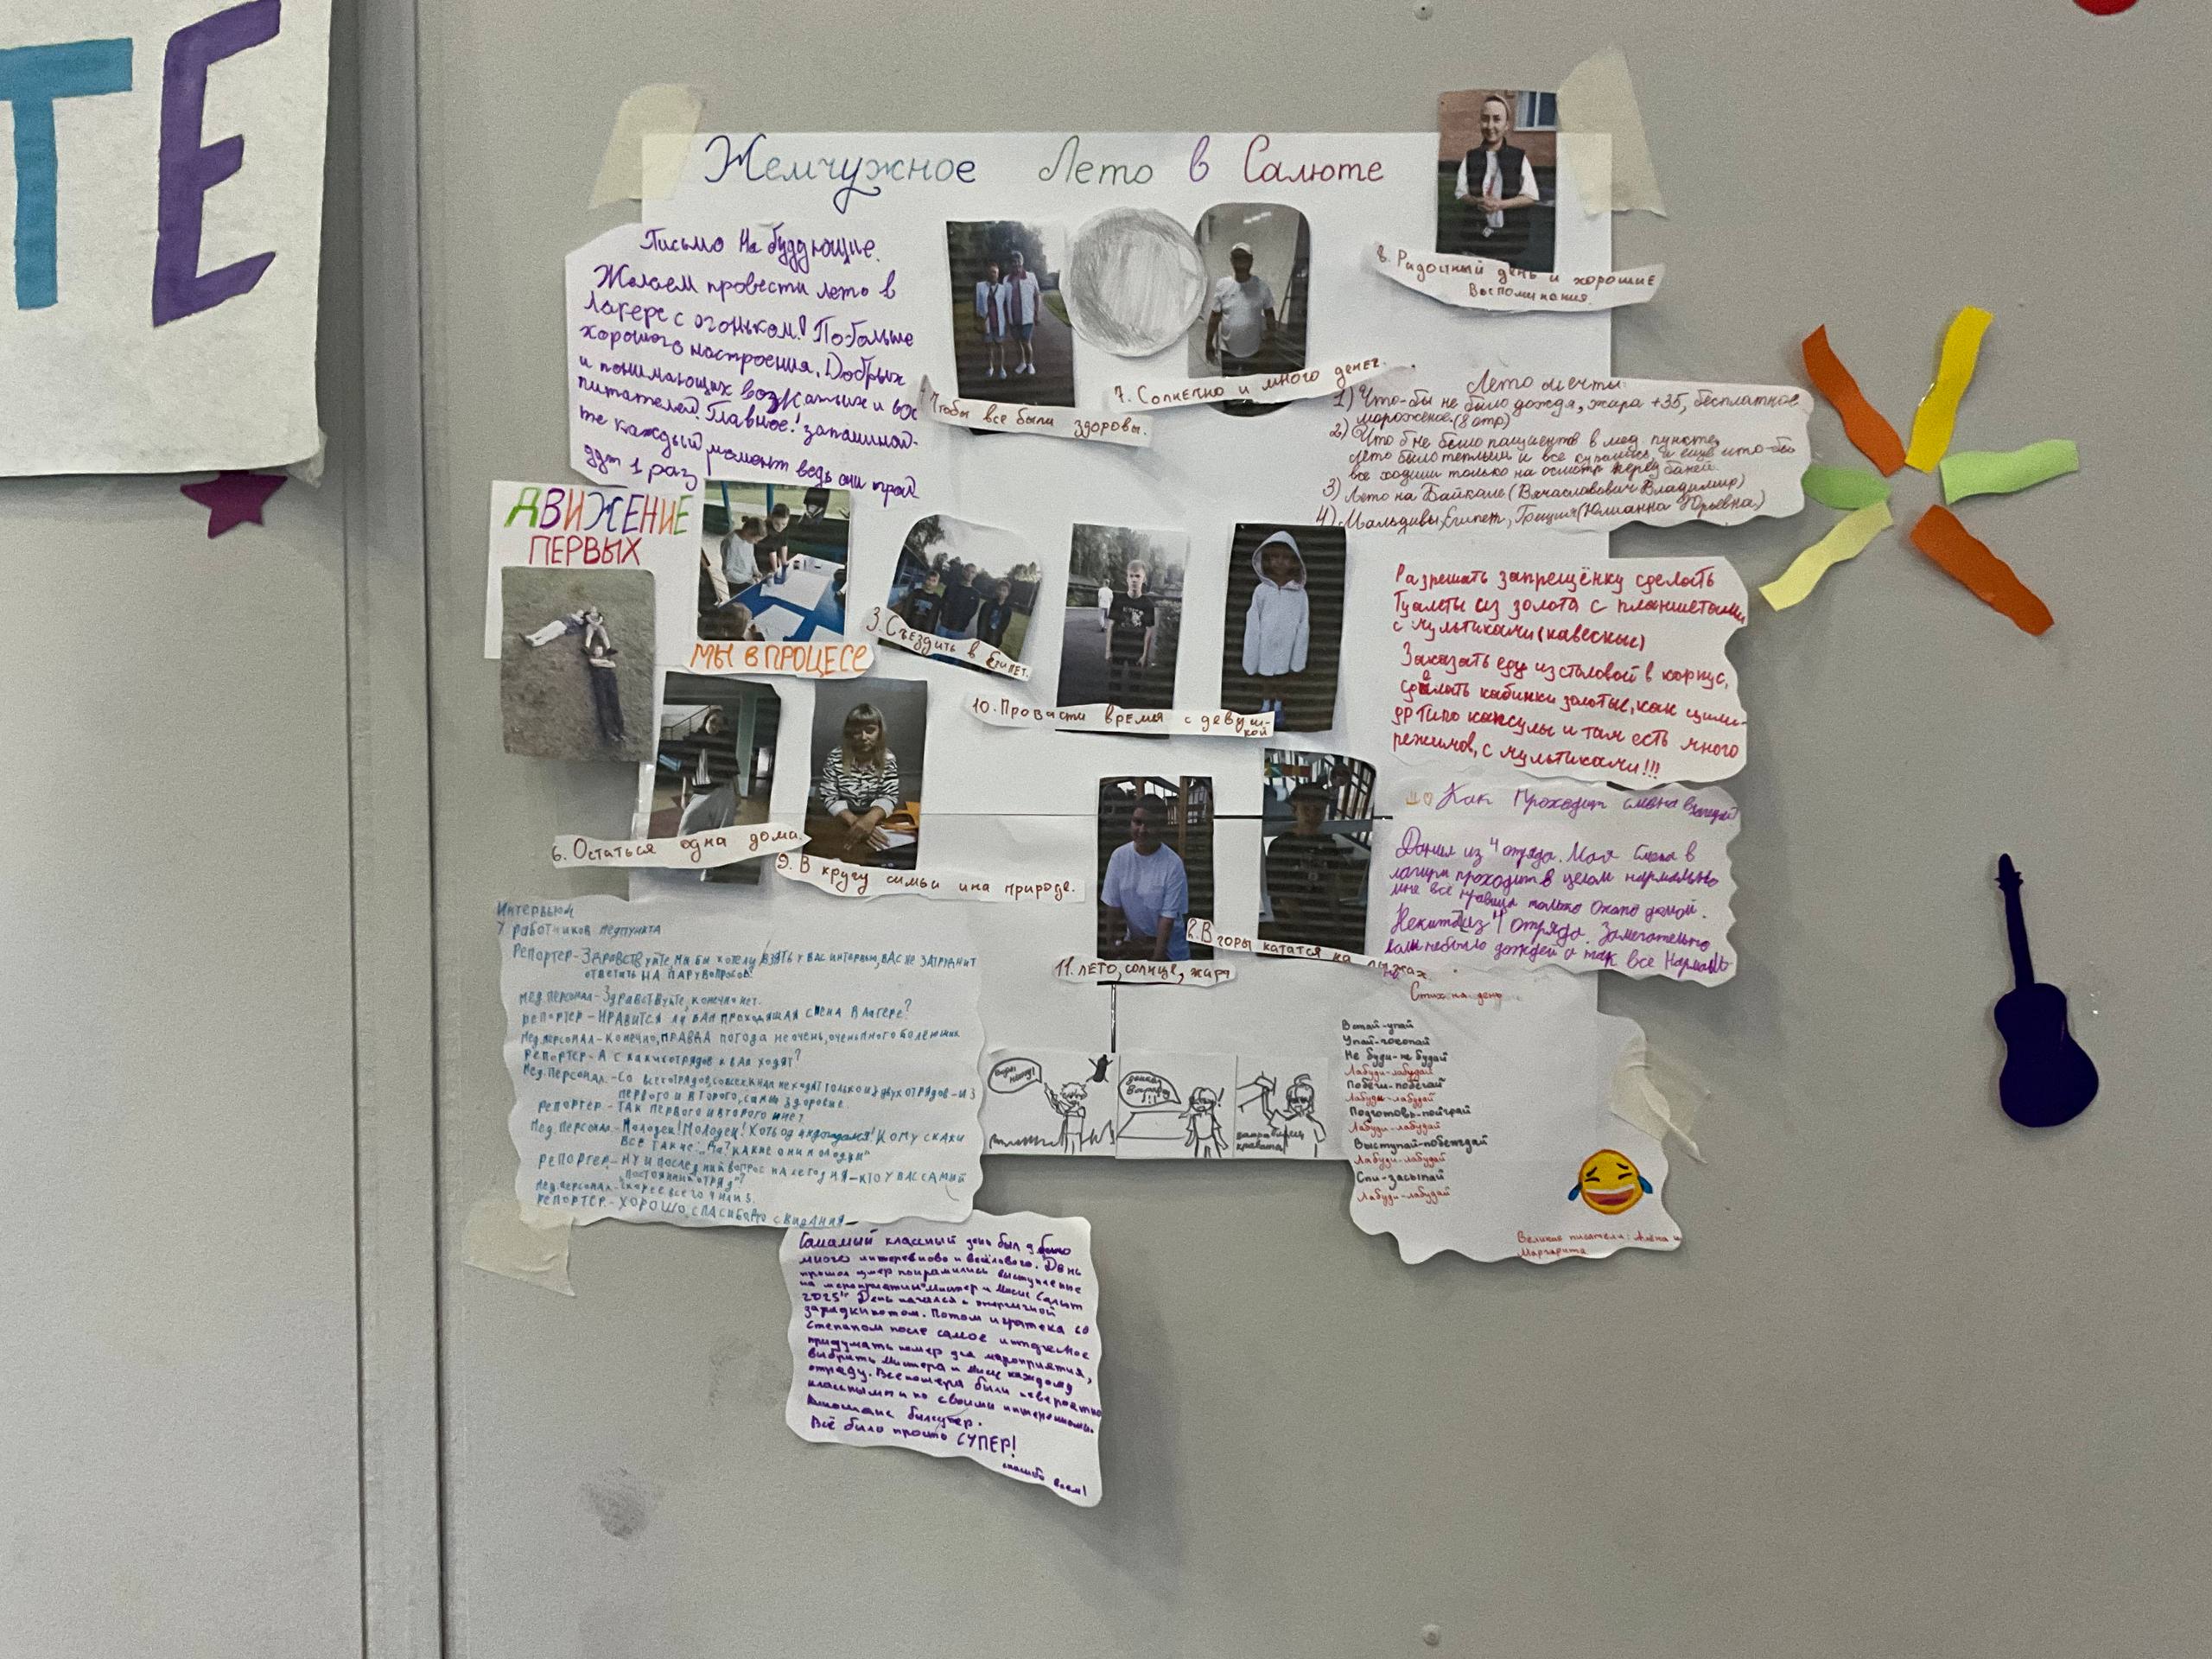 ТЕ
Жемчужное Лето в Салюте
Письмо На буддующие.
Желаем провести лето в
лагере с огоньком! Побольше
хорошого настроения. Добрых
и понимающих вожатых и вос
питателей. Главное! запоминай-
те каждый момент ведь они прой
дут 1 раз
Чтобы все были здоровы.
7. Солнечно и много денег.
8. Радостный день и хорошие
воспоминания.
Лето мечты.
1) Что-бы не было дождя, жара +35, бесплатное
мороженое. (8 отр)
2) Что б не было пациентов в мед. пункте,
лето было теплым и все купались, и еще что-бы
все ходили только на осмотр перед баней.
3) Лето на Байкале (Вячаславович Владимир)
4) Мальдивы, Египет, Греция (Юлианна Юрьевна)
ДВИЖЕНИЕ
ПЕРВЫХ
МЫ В ПРОЦЕСЕ
3. Съездить в Египет.
10. Провасти время с девуш-
кой
Разрешать запрещёнку сделать
Туалеты из золота с планшетами
с мультиками (навесные)
Заказать еду из столовой в корпус,
сделать кабинки золотые, как цили-
др типо капсулы и там есть много
режимов, с мультиками!!!
6. Остаться одна дома.
9. В кругу симьи и на природе.
11. лето, солнце, жара
2. В горы кататся на лыжах
Как Проходит смена
Данил из 4 отряда. Моя Смена в
лагири проходит в целом нармально
мне всё только домой.
из 4 отряда. Замечательно
дождей а так все
Интервью
У работников медпункта
Репортер - Здравствуйте, мы бы хотели взять у вас интервью, вас не затруднит
ответить на пару вопросов?
Мед. персонал - Здравствуйте, конечно нет.
Репортер - Нравится ли вам проходящая смена в лагере?
Мед. персонал - Конечно, правда погода не очень, очень много болеющих
Репортер - А с каких отрядов к вам ходят?
Мед. персонал - Со всех отрядов, совсем к нам не ходят только из двух отрядов - из
первого и второго, самые здоровые.
Репортер - Так первого и второго и нет
Мед. персонал - Молодец! Молодец! Хоть од И кому скажи
все такие: "Да? какие они молодцы"
Репортер - Ну и последний вопрос на сегодня - кто у вас самый
"постоянный отряд"?
Мед. персонал - Скорее всего 4 или 5.
Репортер - Хорошо, спасибо, до свидания
Стих на день
Встай-упай
Упай-гокопай
Не буди-не будай
Лабуди-лабудай
Побеги-побегай
Лабуди-лабудай
Подготовь-поиграй
Лабуди-лабудай
Выступай-побеждай
Лабуди-лабудай
Спи-засыпай
Лабуди-лабудай
Великие писатели: Алёна и
Маргарита
классный день был было
много интересново и весёлового. День
прошол супер выступление
на мероприятии "Мистер и Мисис Салют
2025" День начался с энергичной
зарядки потом. Потом игратека со
Степаном после самое
придумать номер для мероприятия,
выбрать Мистера и Мисс каждому
отряду. Все номера были невероятно
классными и по своиму интересными.
Всё было просто СУПЕР!
спасибо всем!